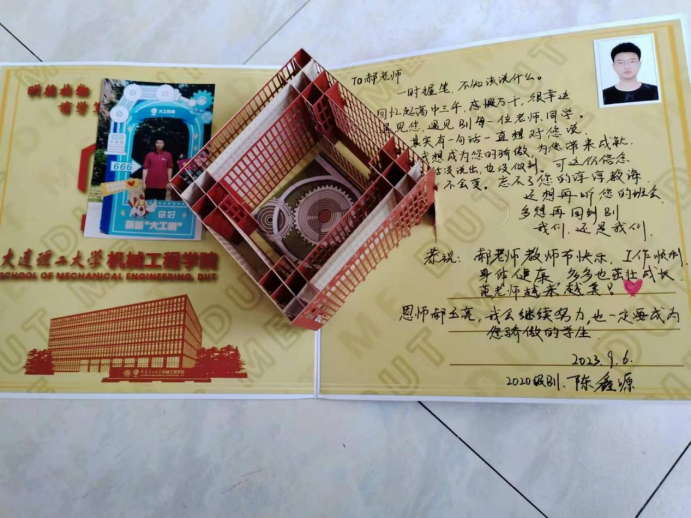 666
你好
大连理工大学 机械工程学院
SCHOOL OF MECHANICAL ENGINEERING, DUT
TO 郝老师
一时提笔,不知该说什么。
回忆起高中三年,感慨万千,很幸运
遇见您,遇见别每一位老师、同学。
其实有一句话一直想对您说
想成为您的骄傲,为您带来成就
没说出,也没做到。可这份信念
不会变。忘不了您的谆谆教诲
还想再听您的班会
多想再回到别
我们,还是我们。
恭祝:郝老师教师节快乐,工作顺利
身体健康,多多也茁壮成长
范老师越来越美!
恩师郝玉亮,我会继续努力,也一定要成为
您骄傲的学生.
2023.9.6.
2020级别.陈鑫源